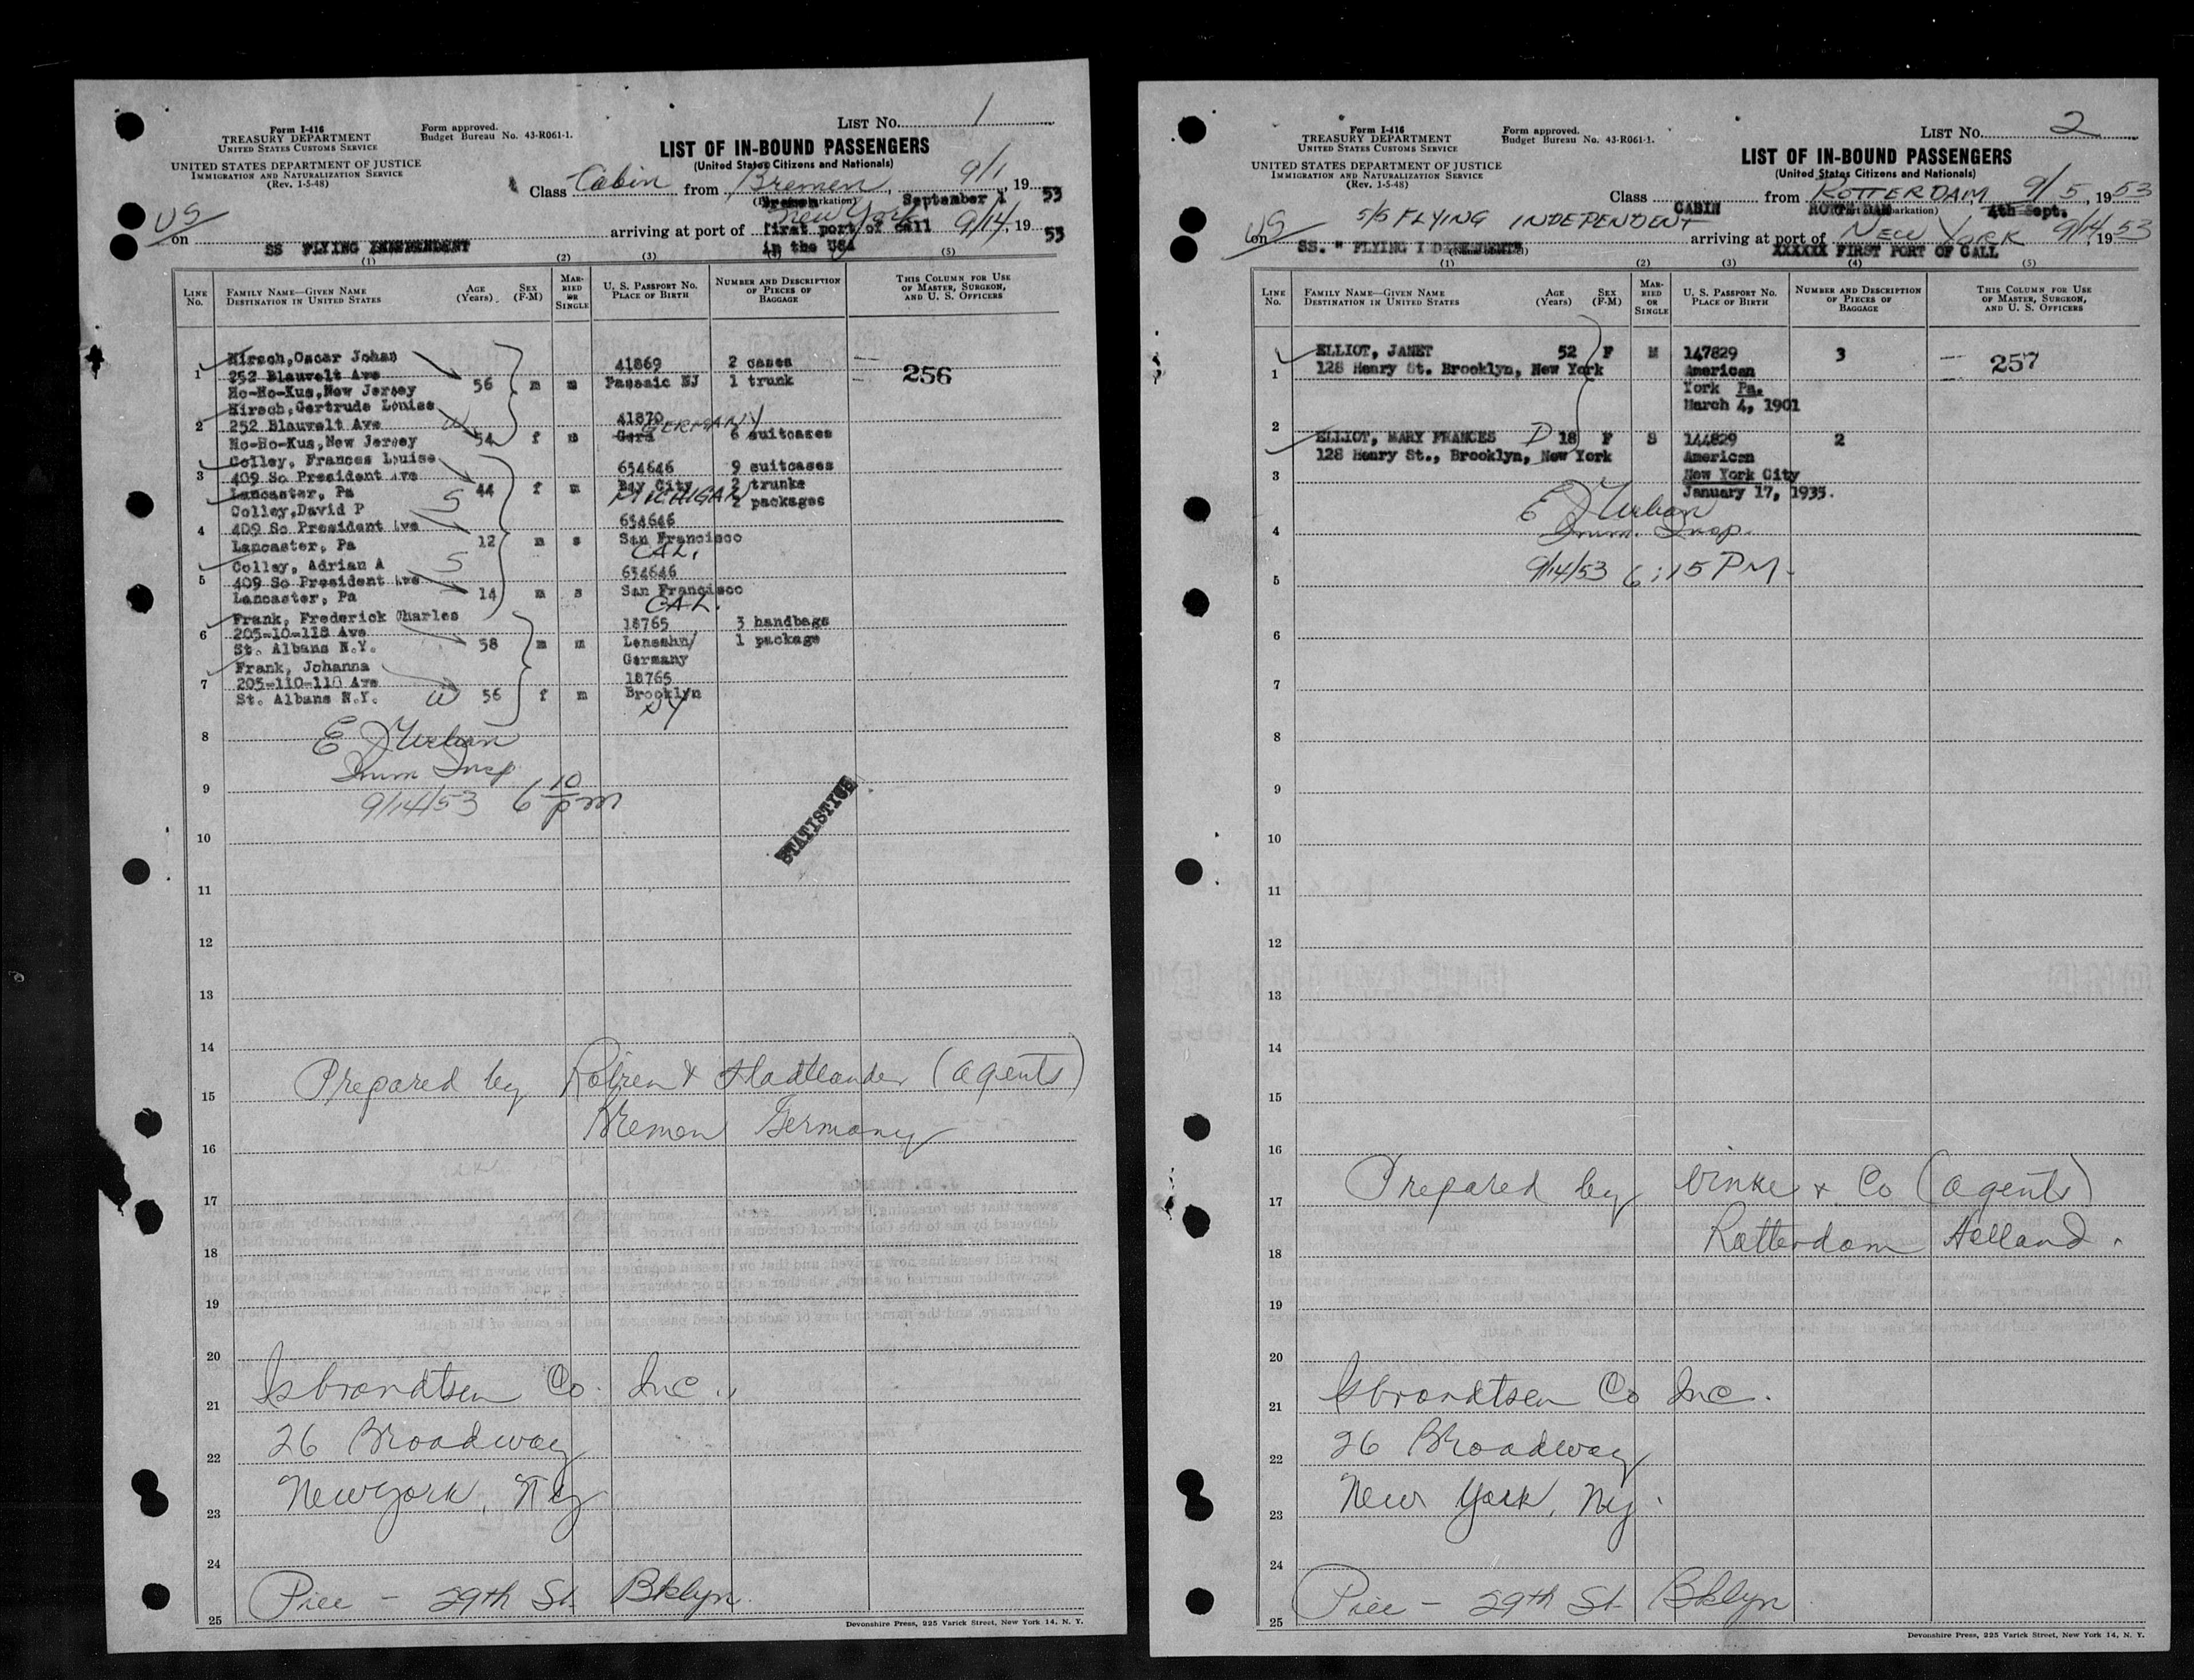 Form I-416
TREASURY DEPARTMENT
UNITED STATES CUSTOMS SERVICE
UNITED STATES DEPARTMENT OF JUSTICE
IMMIGRATION AND NATURALIZATION SERVICE
(Rev. 1-5-48)
Form approved.
Budget Bureau No. 43-R061-1.
LIST No. 1
LIST OF IN-BOUND PASSENGERS
(United States Citizens and Nationals)
Class Cabin from Bremen, 9/1, 19 53
Bremen September 1
US
on SS FLYING INDEPENDENT arriving at port of New York 9/14, 19 53
first port of call
in the USA
(1) (2) (3) (5)
LINE No. FAMILY NAME—GIVEN NAME DESTINATION IN UNITED STATES AGE (Years) SEX (F-M) MARRIED OR SINGLE U. S. PASSPORT No. PLACE OF BIRTH NUMBER AND DESCRIPTION OF PIECES OF BAGGAGE THIS COLUMN FOR USE OF MASTER, SURGEON, AND U. S. OFFICERS
1 Hirsch, Oscar Johan 41869 2 cases
252 Blauvelt Ave 56 m m Passaic NJ 1 trunk 256
Ho-Ho-Kus, New Jersey
2 Hirsch, Gertrude Louise W 41870
252 Blauvelt Ave GERMANY
Ho-Ho-Kus, New Jersey 54 f m Gera 6 suitcases
3 Colley, Frances Louise 634646 9 suitcases
409 So President Ave 44 f m Bay City 2 trunks
Lancaster, Pa MICHIGAN 2 packages
4 Colley, David P S
409 So President Ave 634646
Lancaster, Pa 12 m s San Francisco
CAL.
5 Colley, Adrian A S 634646
409 So President Ave
Lancaster, Pa 14 m s San Francisco
CAL.
6 Frank, Frederick Charles 18765 3 handbags
205-10-118 Ave 58 m m Lensahn/ 1 package
St. Albans N.Y. Germany
7 Frank, Johanna 18765
205-110-118 Ave
St. Albans N.Y. W 56 f m Brooklyn
NY
8
Imm Insp
9 9/14/53 6 10 pm
STATISTICS
10
11
12
13
14
Prepared by & (agents)
15
Bremen Germany
16
17
18
19
20
Isbrandtsen Co. Inc.
21
26 Broadway
22
New York, NY
23
24
Pier - 29th St. Bklyn.
25
Devonshire Press, 225 Varick Street, New York 14, N. Y.
Form I-416
TREASURY DEPARTMENT
UNITED STATES CUSTOMS SERVICE
UNITED STATES DEPARTMENT OF JUSTICE
IMMIGRATION AND NATURALIZATION SERVICE
(Rev. 1-5-48)
Form approved.
Budget Bureau No. 43-R061-1.
LIST No. 2
LIST OF IN-BOUND PASSENGERS
(United States Citizens and Nationals)
Class CABIN from ROTTERDAM 9/5, 19 53
ROTTERDAM 4th Sept.
US S/S FLYING INDEPENDENT
on SS. " FLYING INDEPENDENT" arriving at port of NEW YORK 9/14, 19 53
XXXXXX FIRST PORT OF CALL
(1) (2) (3) (4) (5)
LINE No. FAMILY NAME—GIVEN NAME DESTINATION IN UNITED STATES AGE (Years) SEX (F-M) MARRIED OR SINGLE U. S. PASSPORT No. PLACE OF BIRTH NUMBER AND DESCRIPTION OF PIECES OF BAGGAGE THIS COLUMN FOR USE OF MASTER, SURGEON, AND U. S. OFFICERS
1 ELLIOT, JANET 52 F M 147829 3 257
128 Henry St. Brooklyn, New York American
York Pa.
March 4, 1901
2 ELLIOT, MARY FRANCES D 18 F S 144829 2
128 Henry St., Brooklyn, New York American
3 New York City
January 17, 1935.
4 Imm. Insp.
5 9/14/53 6:15 PM.
6
7
8
9
10
11
12
13
14
15
16
Prepared by Vinke & Co (agents)
17
18 Rotterdam Holland.
19
20
Isbrandtsen Co Inc.
21
26 Broadway
22
New York, NY.
23
24
Pier - 29th St. Bklyn
25
Devonshire Press, 225 Varick Street, New York 14, N. Y.